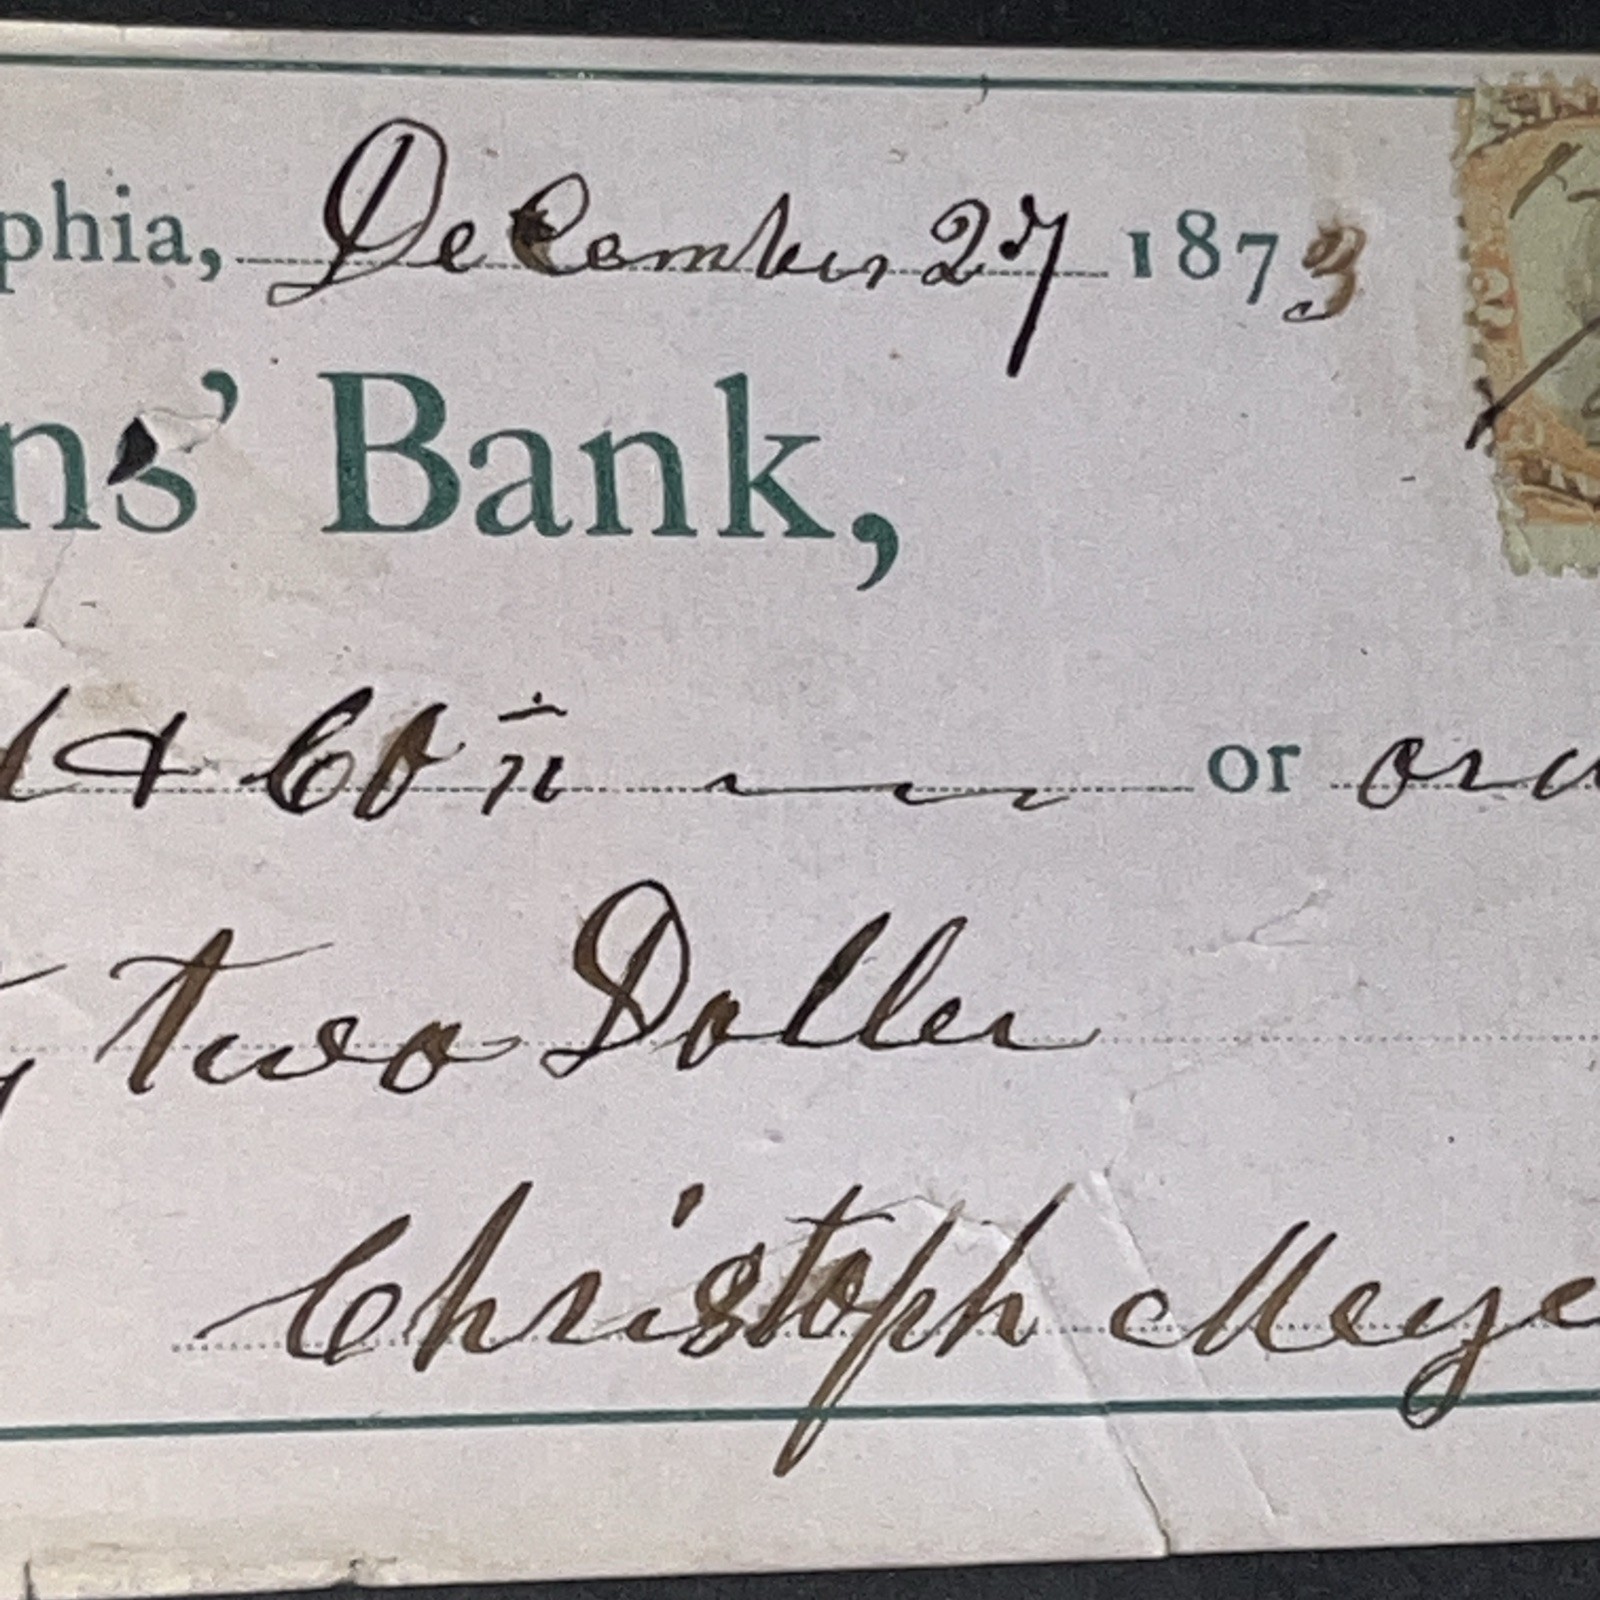 phia, December 27 1873
ns' Bank,
& Co or
two Doller
Christoph Meye